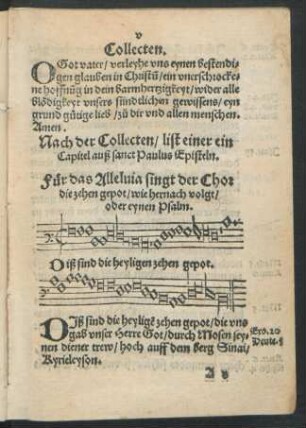 v
Collecten.
O Got vater/ verleyhe vns eynen bestendi-
gen glauben in Christū/ ein vnerschrocke-
ne hoffnūg in dein barmhertzigkeyt/ wider alle
blödigkeyt vnsers sündlichen gewissens/ eyn
grund gütige lieb/ zů dir vnd allen menschen.
Amen.
Nach der Collecten/ list einer ein
Capitel auß sanct Paulus Episteln.
Für das Alleluia singt der Chor
die zehen gepot/ wie hernach volgt/
oder eynen Psalm.
Diß sind die heyligen zehen gepot.
DIß sind die heyligē zehen gepot/ die vns
gab vnser Herre Got/ durch Mosen sey-
nen diener trew/ hoch auff dem berg Sinai/
Kyrieleyson.
Exo. 20
Deute. 5
A v